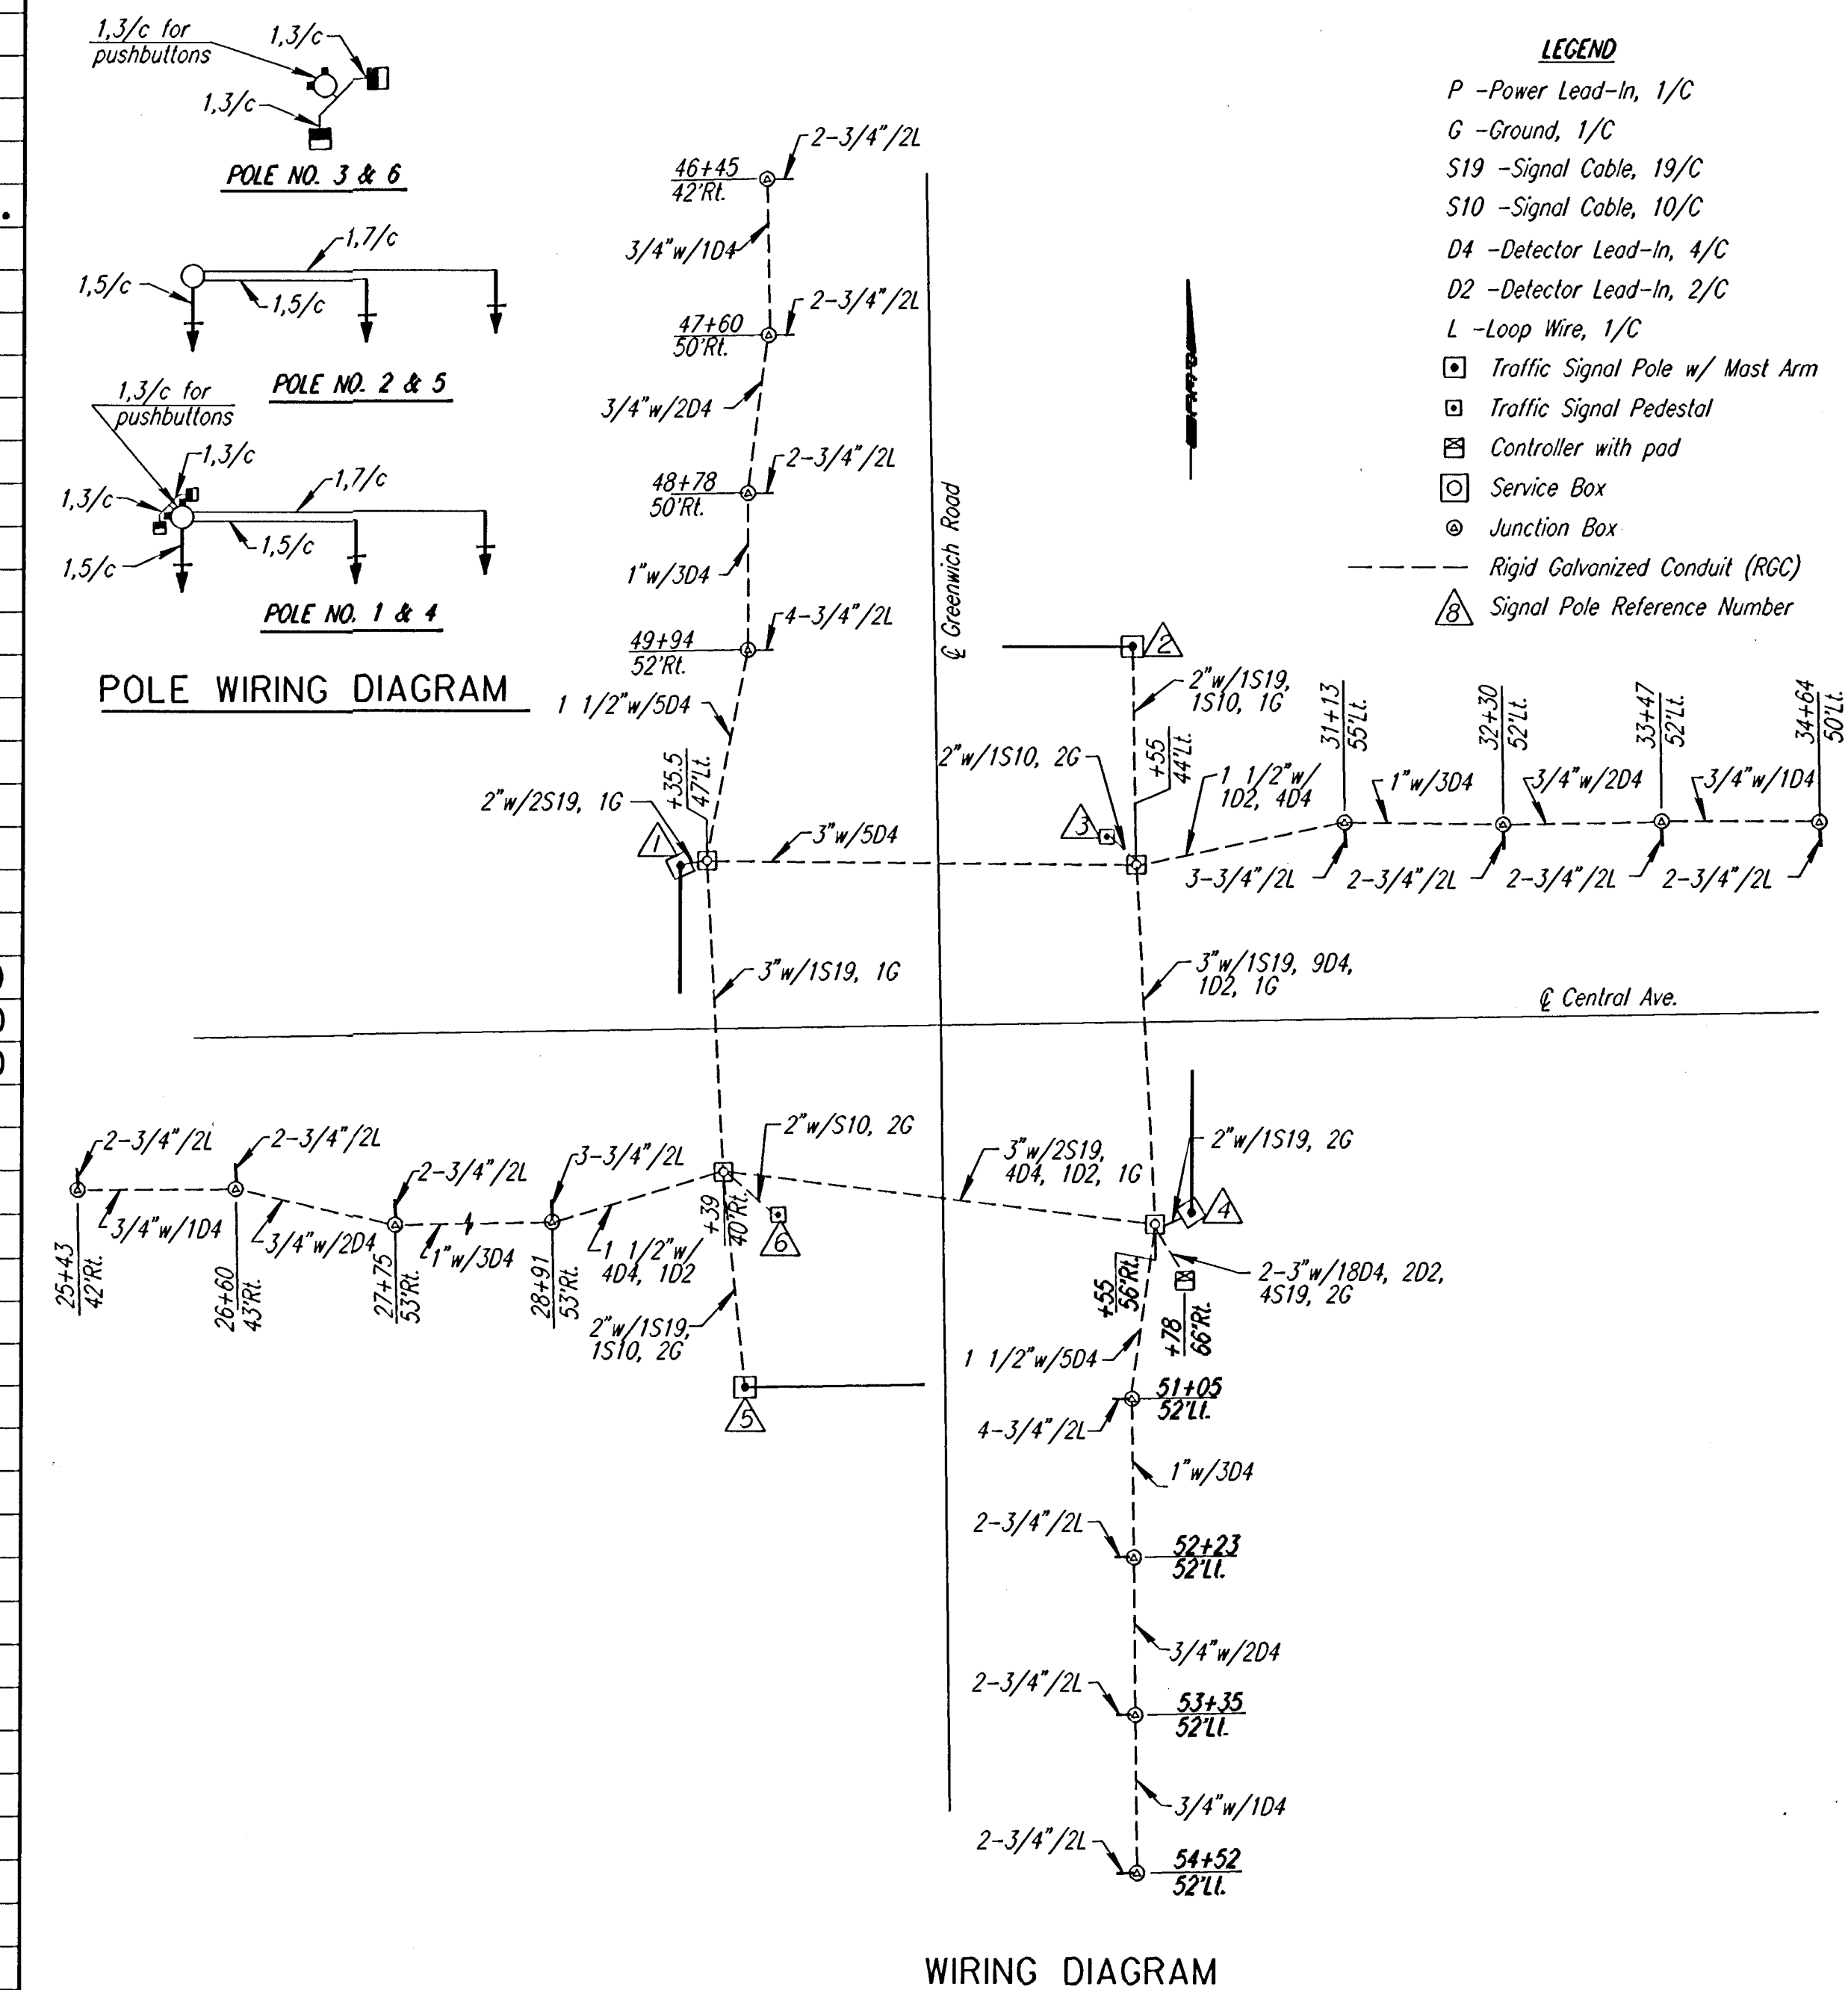 1,3/c for
pushbuttons
1,3/c
1,3/c
POLE NO. 3 & 6
1,7/c
1,5/c
1,5/c
POLE NO. 2 & 5
1,3/c for
pushbuttons
1,3/c
1,3/c
1,7/c
1,5/c
1,5/c
POLE NO. 1 & 4
POLE WIRING DIAGRAM
LEGEND
P -Power Lead-In, 1/C
G -Ground, 1/C
S19 -Signal Cable, 19/C
S10 -Signal Cable, 10/C
D4 -Detector Lead-In, 4/C
D2 -Detector Lead-In, 2/C
L -Loop Wire, 1/C
Traffic Signal Pole w/ Mast Arm
Traffic Signal Pedestal
Controller with pad
Service Box
Junction Box
Rigid Galvanized Conduit (RGC)
8 Signal Pole Reference Number
46+45
42'Rt.
2-3/4"/2L
3/4"w/1D4
47+60
50'Rt.
2-3/4"/2L
3/4"w/2D4
48+78
50'Rt.
2-3/4"/2L
1"w/3D4
49+94
52'Rt.
4-3/4"/2L
1 1/2"w/5D4
℄ Greenwich Road
2
2"w/1S19,
1S10, 1G
+35.5
47'Lt.
2"w/2S19, 1G
1
3"w/5D4
2"w/1S10, 2G
+55
44'Lt.
3
1 1/2"w/
1D2, 4D4
31+13
55'Lt.
1"w/3D4
32+30
52'Lt.
3/4"w/2D4
33+47
52'Lt.
3/4"w/1D4
34+64
50'Lt.
3-3/4"/2L
2-3/4"/2L
2-3/4"/2L
2-3/4"/2L
3"w/1S19, 1G
3"w/1S19, 9D4,
1D2, 1G
℄ Central Ave.
2-3/4"/2L
2-3/4"/2L
2-3/4"/2L
3-3/4"/2L
2"w/S10, 2G
3"w/2S19,
4D4, 1D2, 1G
2"w/1S19, 2G
4
3/4"w/1D4
3/4"w/2D4
1"w/3D4
1 1/2"w/
4D4, 1D2
25+43
42'Rt.
26+60
43'Rt.
27+75
53'Rt.
28+91
53'Rt.
+39
40'Rt.
6
2"w/1S19,
1S10, 2G
5
+55
56'Rt.
+78
66'Rt.
2-3"w/18D4, 2D2,
4S19, 2G
1 1/2"w/5D4
51+05
52'Lt.
4-3/4"/2L
1"w/3D4
2-3/4"/2L
52+23
52'Lt.
3/4"w/2D4
2-3/4"/2L
53+35
52'Lt.
3/4"w/1D4
2-3/4"/2L
54+52
52'Lt.
WIRING DIAGRAM